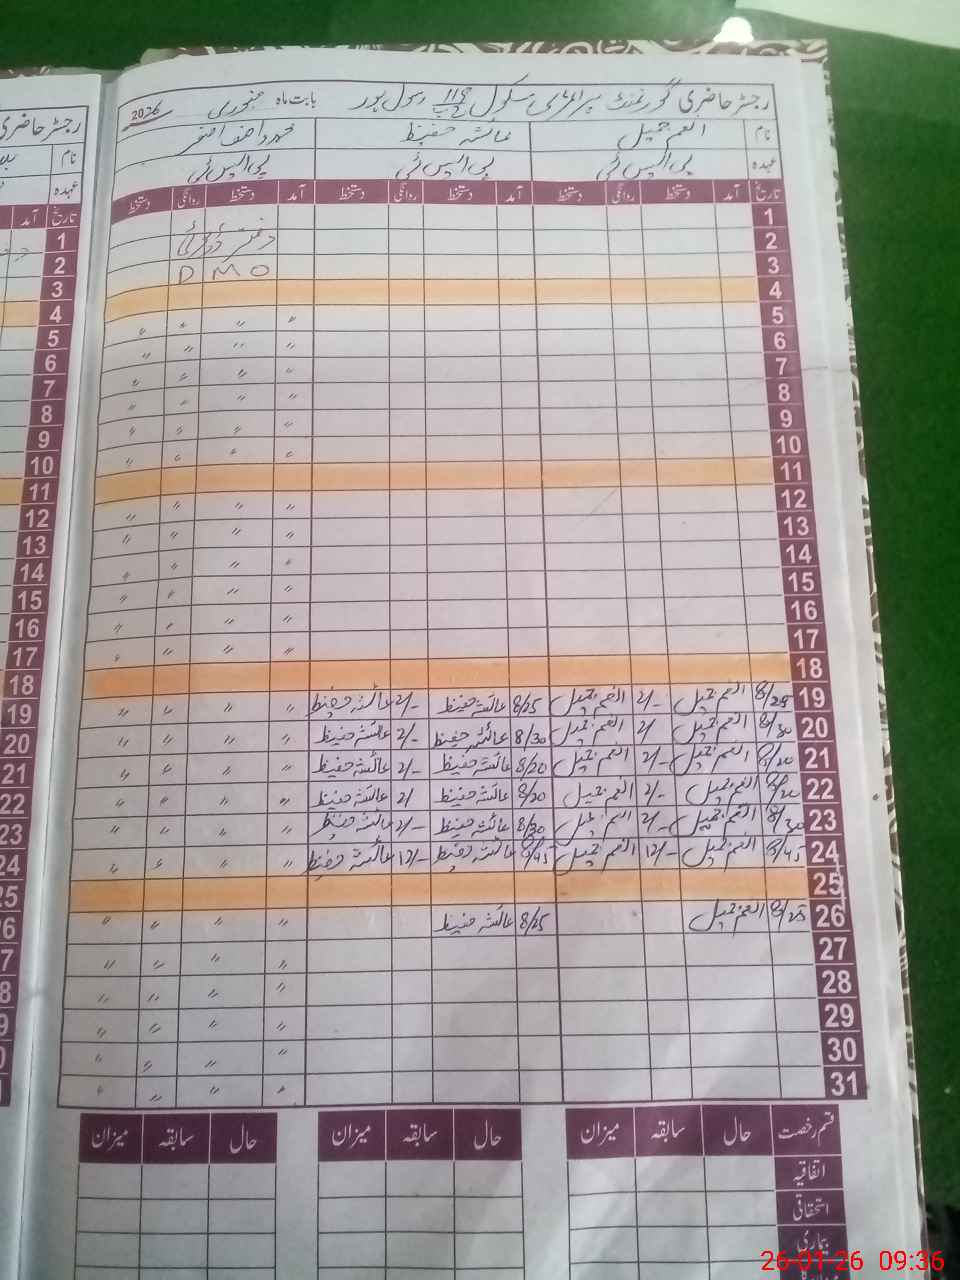 رجسٹر حاضری گورنمنٹ پرائمری سکول 118 ج ب رسول پور بابت ماہ جنوری 2026
نام انعم جمیل عائشہ حفیظ محمد واصف اصغر
عہدہ پی ایس ٹی پی ایس ٹی پی ایس ٹی
تاریخ آمد دستخط روانگی دستخط آمد دستخط روانگی دستخط آمد دستخط روانگی دستخط
1
2 دفتر ڈپٹی
3 DMO
4
5 〃 〃 〃 〃
6 〃 〃 〃 〃
7 〃 〃 〃 〃
8 〃 〃 〃 〃
9 〃 〃 〃 〃
10 〃 〃 〃 〃
11
12 〃 〃 〃 〃
13 〃 〃 〃 〃
14 〃 〃 〃 〃
15 〃 〃 〃 〃
16 〃 〃 〃 〃
17 〃 〃 〃 〃
18
19 8/25 انعم جمیل 2/- انعم جمیل 8/25 عائشہ حفیظ 2/- عائشہ حفیظ 〃 〃 〃 〃
20 8/30 انعم جمیل 2/ انعم جمیل 8/30 عائشہ حفیظ 2/- عائشہ حفیظ 〃 〃 〃 〃
21 8/20 انعم جمیل 2/- انعم جمیل 8/20 عائشہ حفیظ 2/- عائشہ حفیظ 〃 〃 〃 〃
22 8/20 انعم جمیل 2/- انعم جمیل 8/20 عائشہ حفیظ 2/ عائشہ حفیظ 〃 〃 〃 〃
23 8/30 انعم جمیل 2/- انعم جمیل 8/30 عائشہ حفیظ 2/- عائشہ حفیظ 〃 〃 〃 〃
24 8/45 انعم جمیل 12/- انعم جمیل 8/45 عائشہ حفیظ 12/- عائشہ حفیظ 〃 〃 〃 〃
25
26 8/25 انعم جمیل 8/25 عائشہ حفیظ 〃 〃 〃 〃
27 〃 〃 〃 〃
28 〃 〃 〃 〃
29 〃 〃 〃 〃
30 〃 〃 〃
31 〃 〃 〃 〃
قسم رخصت حال سابقہ میزان حال سابقہ میزان حال سابقہ میزان
اتفاقیہ
استحقاقی
بیماری
رجسٹر حاضری
نام
عہدہ
تاریخ آمد
1
2
3
4
5
6
7
8
9
10
11
12
13
14
15
16
17
18
19
20
21
22
23
24
25
26-01-26 09:36